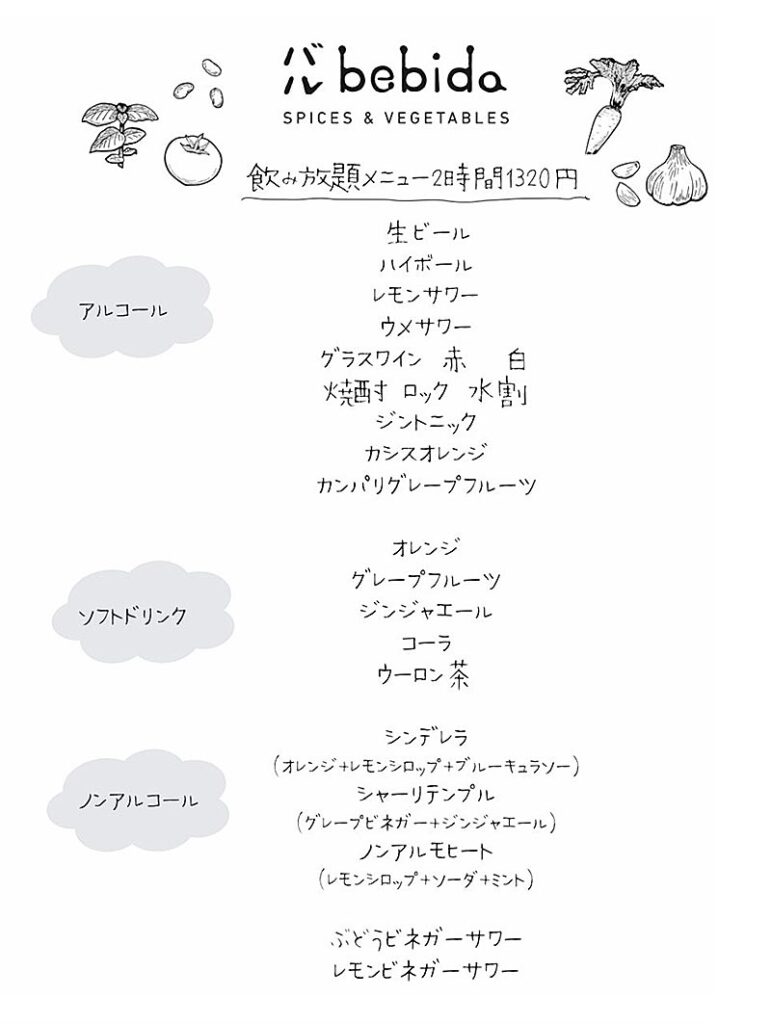 バル bebida
SPICES & VEGETABLES
飲み放題メニュー2時間1320円
アルコール
生ビール
ハイボール
レモンサワー
ウメサワー
グラスワイン 赤 白
焼酎 ロック 水割
ジントニック
カシスオレンジ
カンパリグレープフルーツ
ソフトドリンク
オレンジ
グレープフルーツ
ジンジャエール
コーラ
ウーロン茶
ノンアルコール
シンデレラ
(オレンジ+レモンシロップ+ブルーキュラソー)
シャーリテンプル
(グレープビネガー+ジンジャエール)
ノンアルモヒート
(レモンシロップ+ソーダ+ミント)
ぶどうビネガーサワー
レモンビネガーサワー